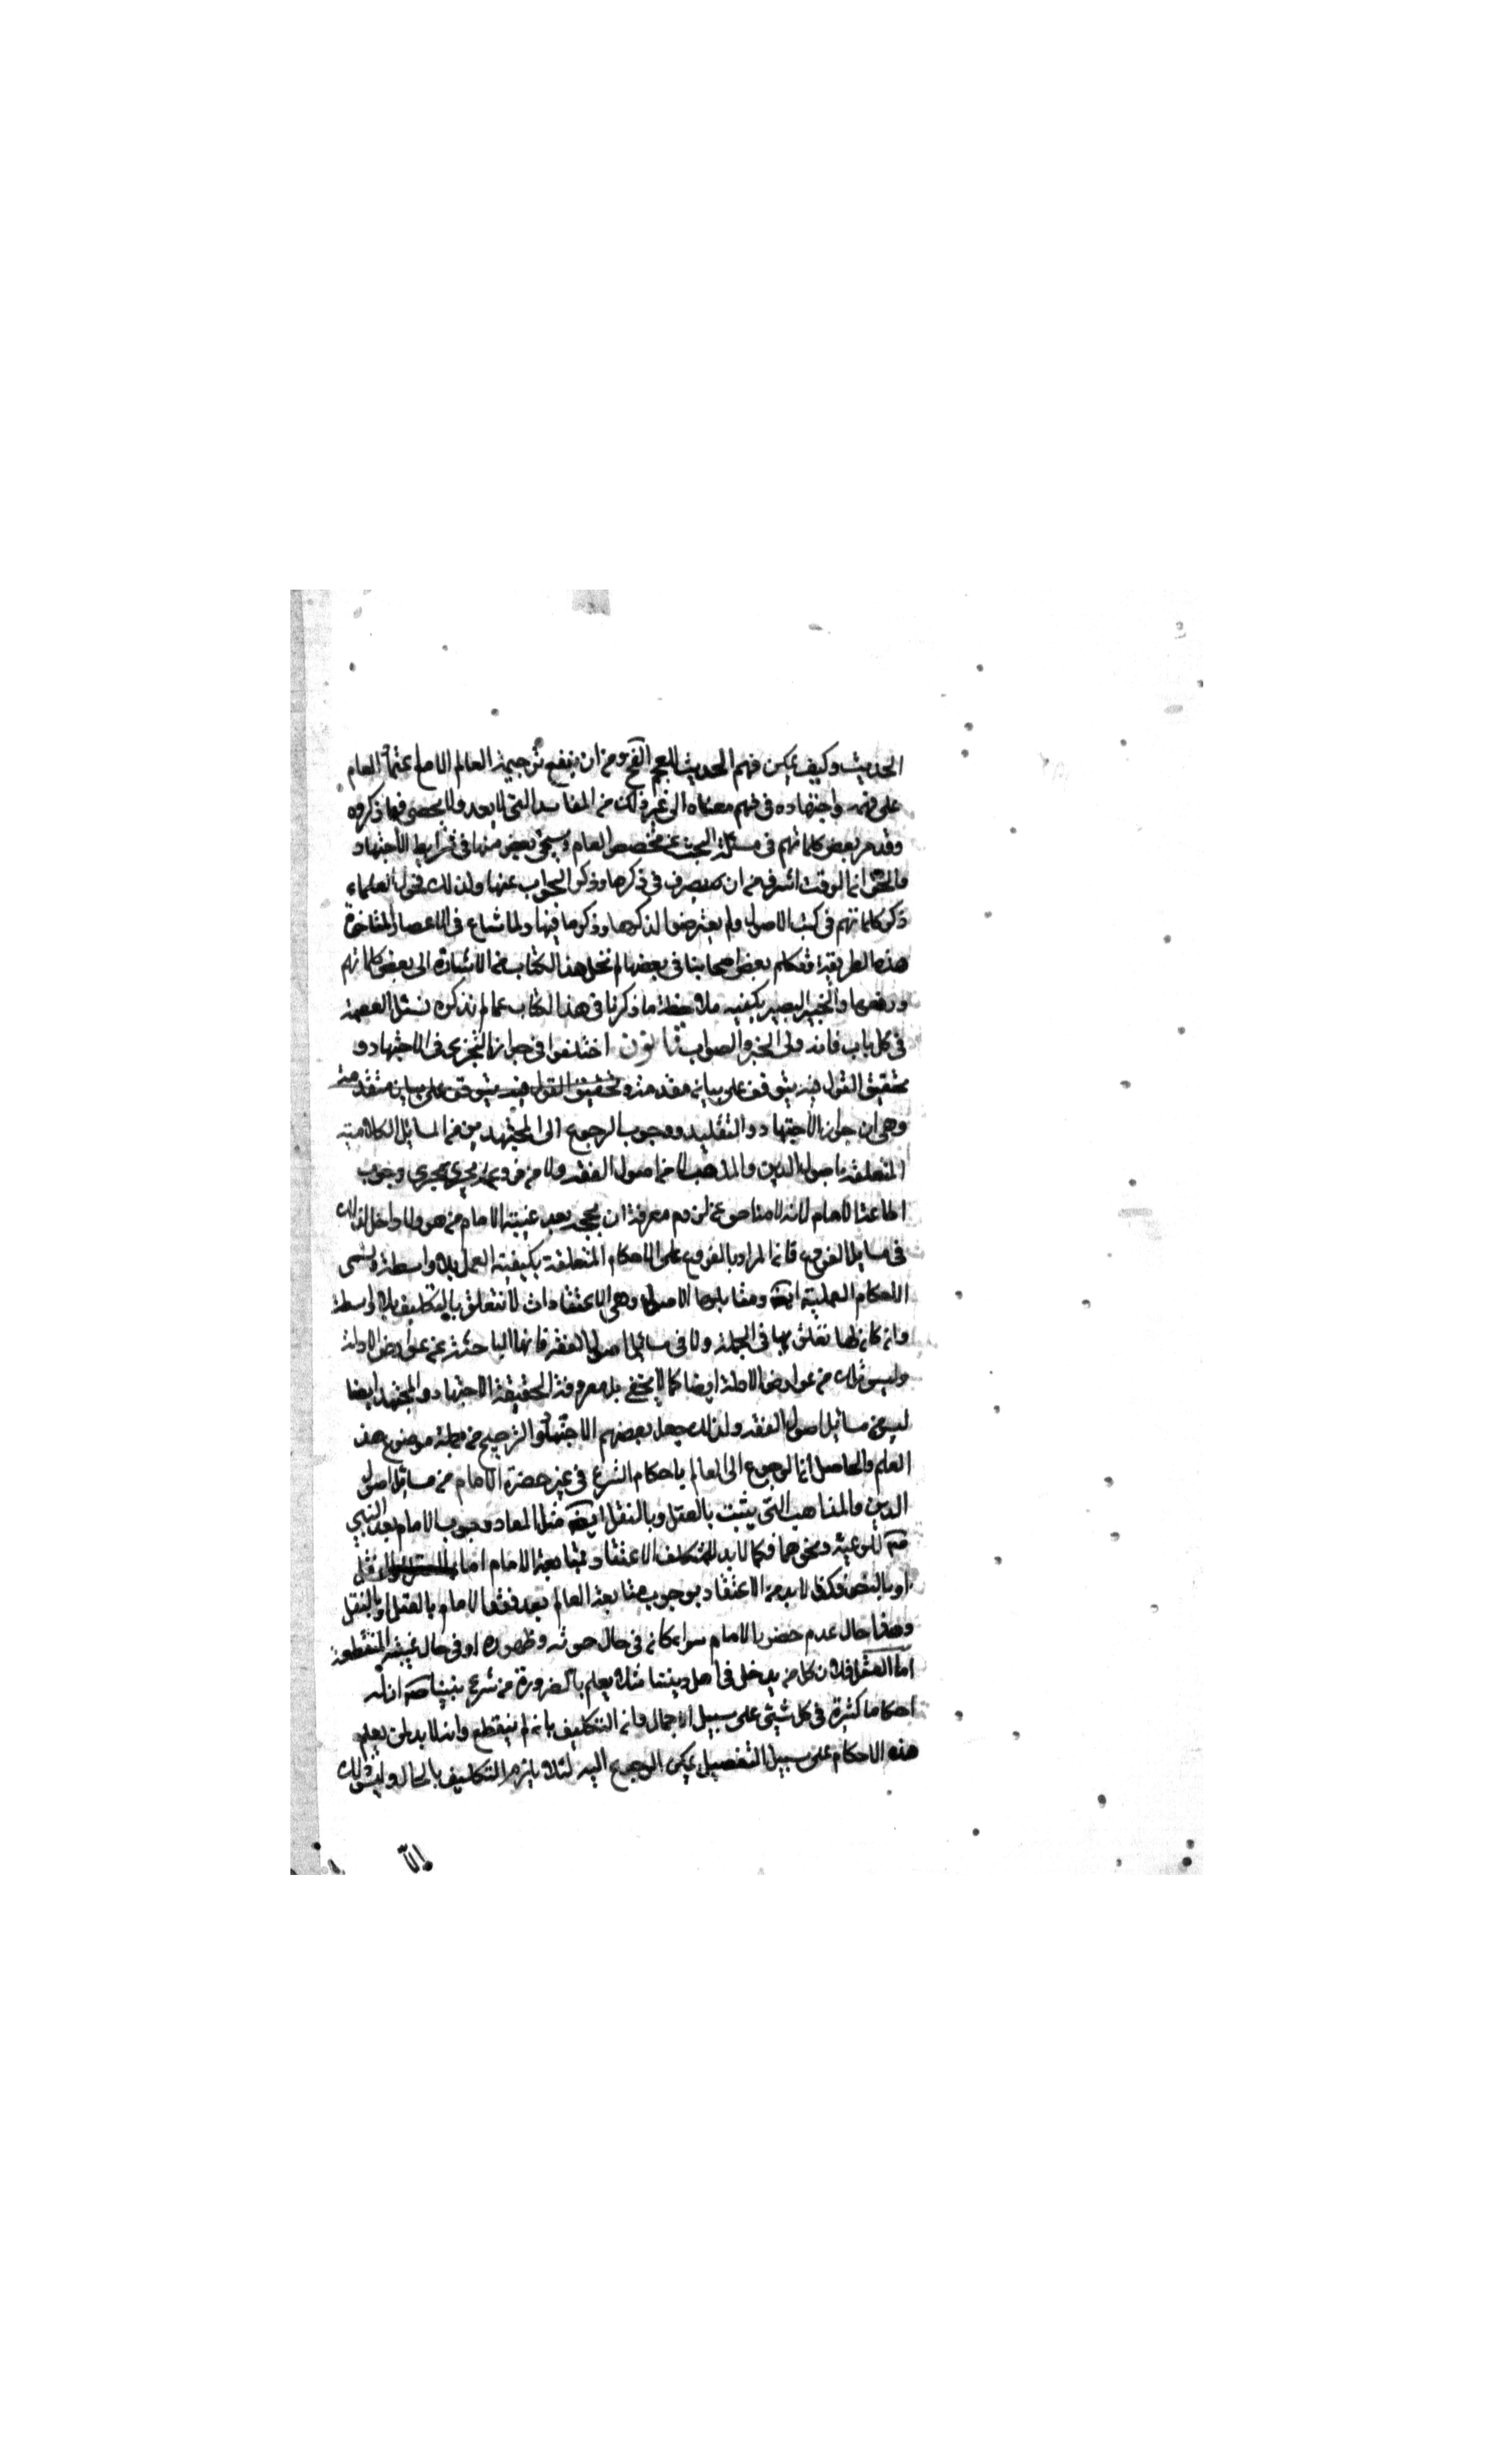 الحديث وكيف يمكن فهم الحديث للعجم القح ومن ان ينفع ترجمة العالم الامع اعتماد العام
على فهمه واجتهاده في فهم معناه الى غير ذلك من المفاسد التى لا يعد ولا يحصى فيما ذكروه
وقد مر بعض كلماتهم في مسئلة البحث عن مخصص العام وسيجئ بعض منها في شرايط الاجتهاد
والحق ان الوقت اشرف من ان يصرف في ذكرها وذكر الجواب عنها ولذلك فحول العلماء
ذكر كلماتهم في كتب الاصول ولم يعترضوا لذكرها وذكر ما فيها ولما شاع في الاعصار المتاخرة
هذه الطريقة وتكلم بعض اصحابنا في بعضها لم نخل هذا الكتاب من الاشارة الى بعض كلماتهم
ودفعها والخبير البصير يكفيه ملاحظة ما ذكرنا في هذا الكتاب عما لم نذكره نسئل العصمة
في كل باب فانه ولى الخير والصواب قانون اختلفوا في جواز التجزى في الاجتهاد و
تحقيق القول فيه يتوقف على بيان مقدمة وتحقيق القول فيه يتوقف على بيان مقدمة
وهي ان جواز الاجتهاد والتقليد ووجوب الرجوع الى المجتهد من المسائل الكلامية
المتعلقة باصول الدين والمذهب لا من اصول الفقه ولا من فروعه يجرى مجرى وجوب
اطاعة الامام لانه لا مناص عن لزوم معرفة ان بعد غيبة الامام من هو ولا داخل لذلك
في مسايل الفروع فان المراد بالفروع هي الاحكام المتعلقة بكيفية العمل بلا واسطة ويسمى
الاحكام العملية ايضا ومقابلها الاصول وهي الاعتقادات لا تتعلق بالتكليف بلا واسطة
وان كان لها تعلق بها في الجملة ولا في مسايل اصول الفقه فانها الباحثة عن عوارض الادلة
وليس ذلك من عوارض الادلة ايضا كما لا يخفى بل معرفة الحقيقة الاجتهاد والمجتهد ايضا
ليس من مسائل اصول الفقه ولذلك جعل بعضهم الاجتهاد والترجيح من جملة موضوع هذا
العلم والحاصل ان الرجوع الى العالم باحكام الشرع في غير حضرة الامام من مسائل اصول
الدين والمذاهب التى يثبت بالعقل وبالنقل ايضا مثل المعاد ووجوب الامام بعد النبي
لا لرعيته ونحوهما فكما لابد للمتكلف الاعتقاد بمتابعة الامام اما بالعقل
او بالنص فكذا لابد من الاعتقاد بوجوب متابعة العالم بعد فقد الامام بالعقل او بالنقل
وهذا حال عدم حضور الامام سواء كان في حال حوته وظهوره او في حال غيبته المنقطعة
اما العقل فلان كل من يدخل في اهل ديننا مثلا يعلم بالضرورة من شرع نبينا ان له
احكاما كثيرة في كل شيئ على سبيل الاجمال وان التكليف بانه لم ينقطع وانه لابد لمن يعلم
هذه الاحكام على سبيل التفصيل يمكن الرجوع اليه لئلا يلزم التكليف بالمحال وليس ذلك
الا